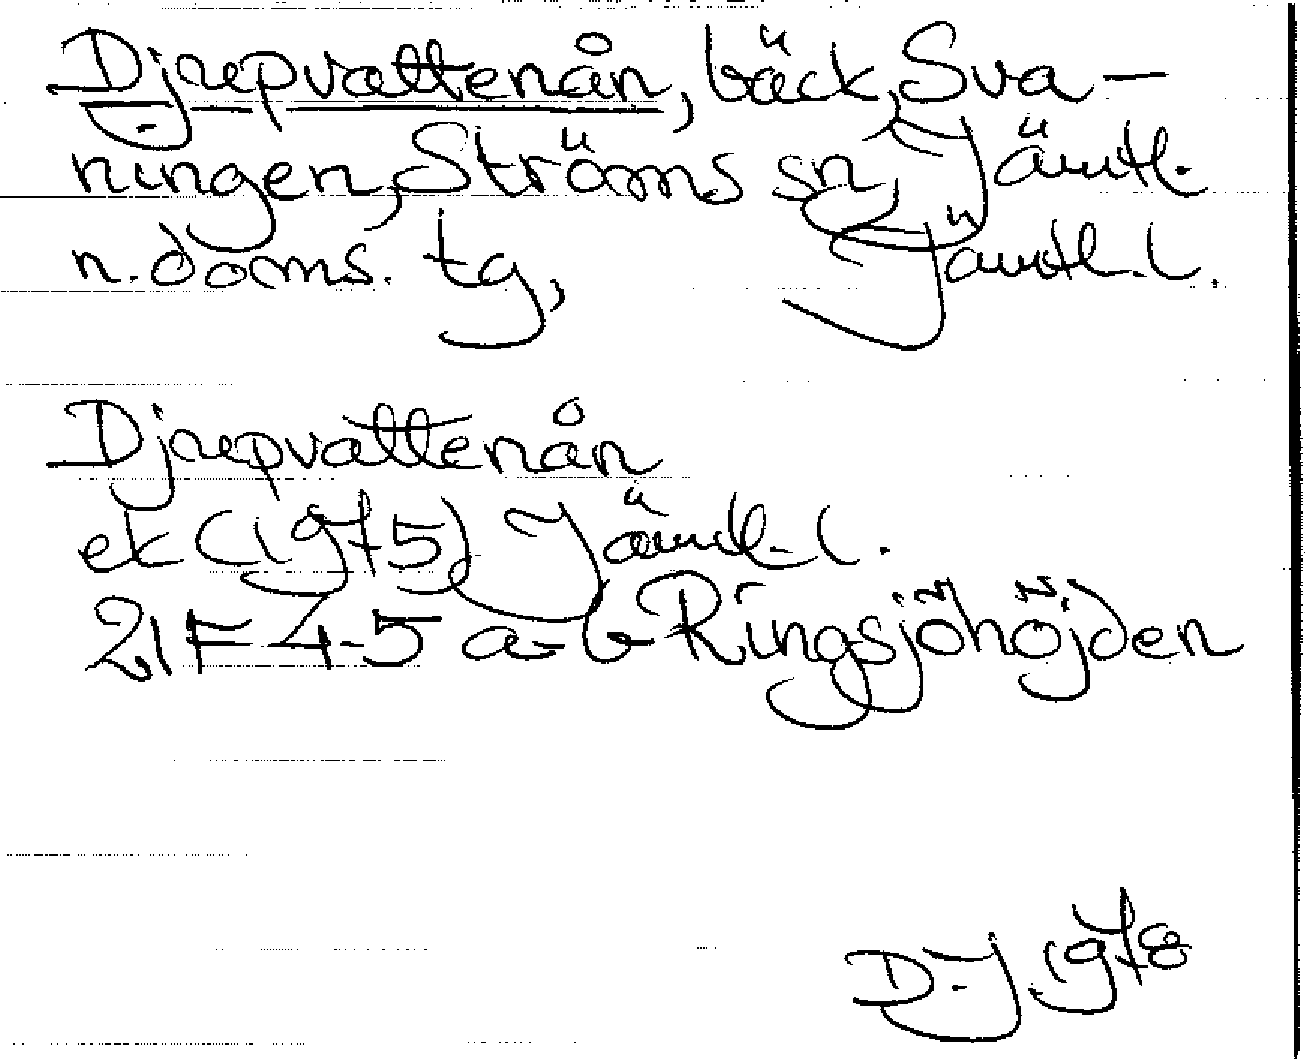 Djupvattenån, bäck, Sva-
ningen, Ströms sn, Jämtl.
n. doms. tg, Jämtl. l.
Djupvattenån
ek (1975) Jämtl. l.
21F 4-5 a-b Ringsjöhöjden
D.J 1978